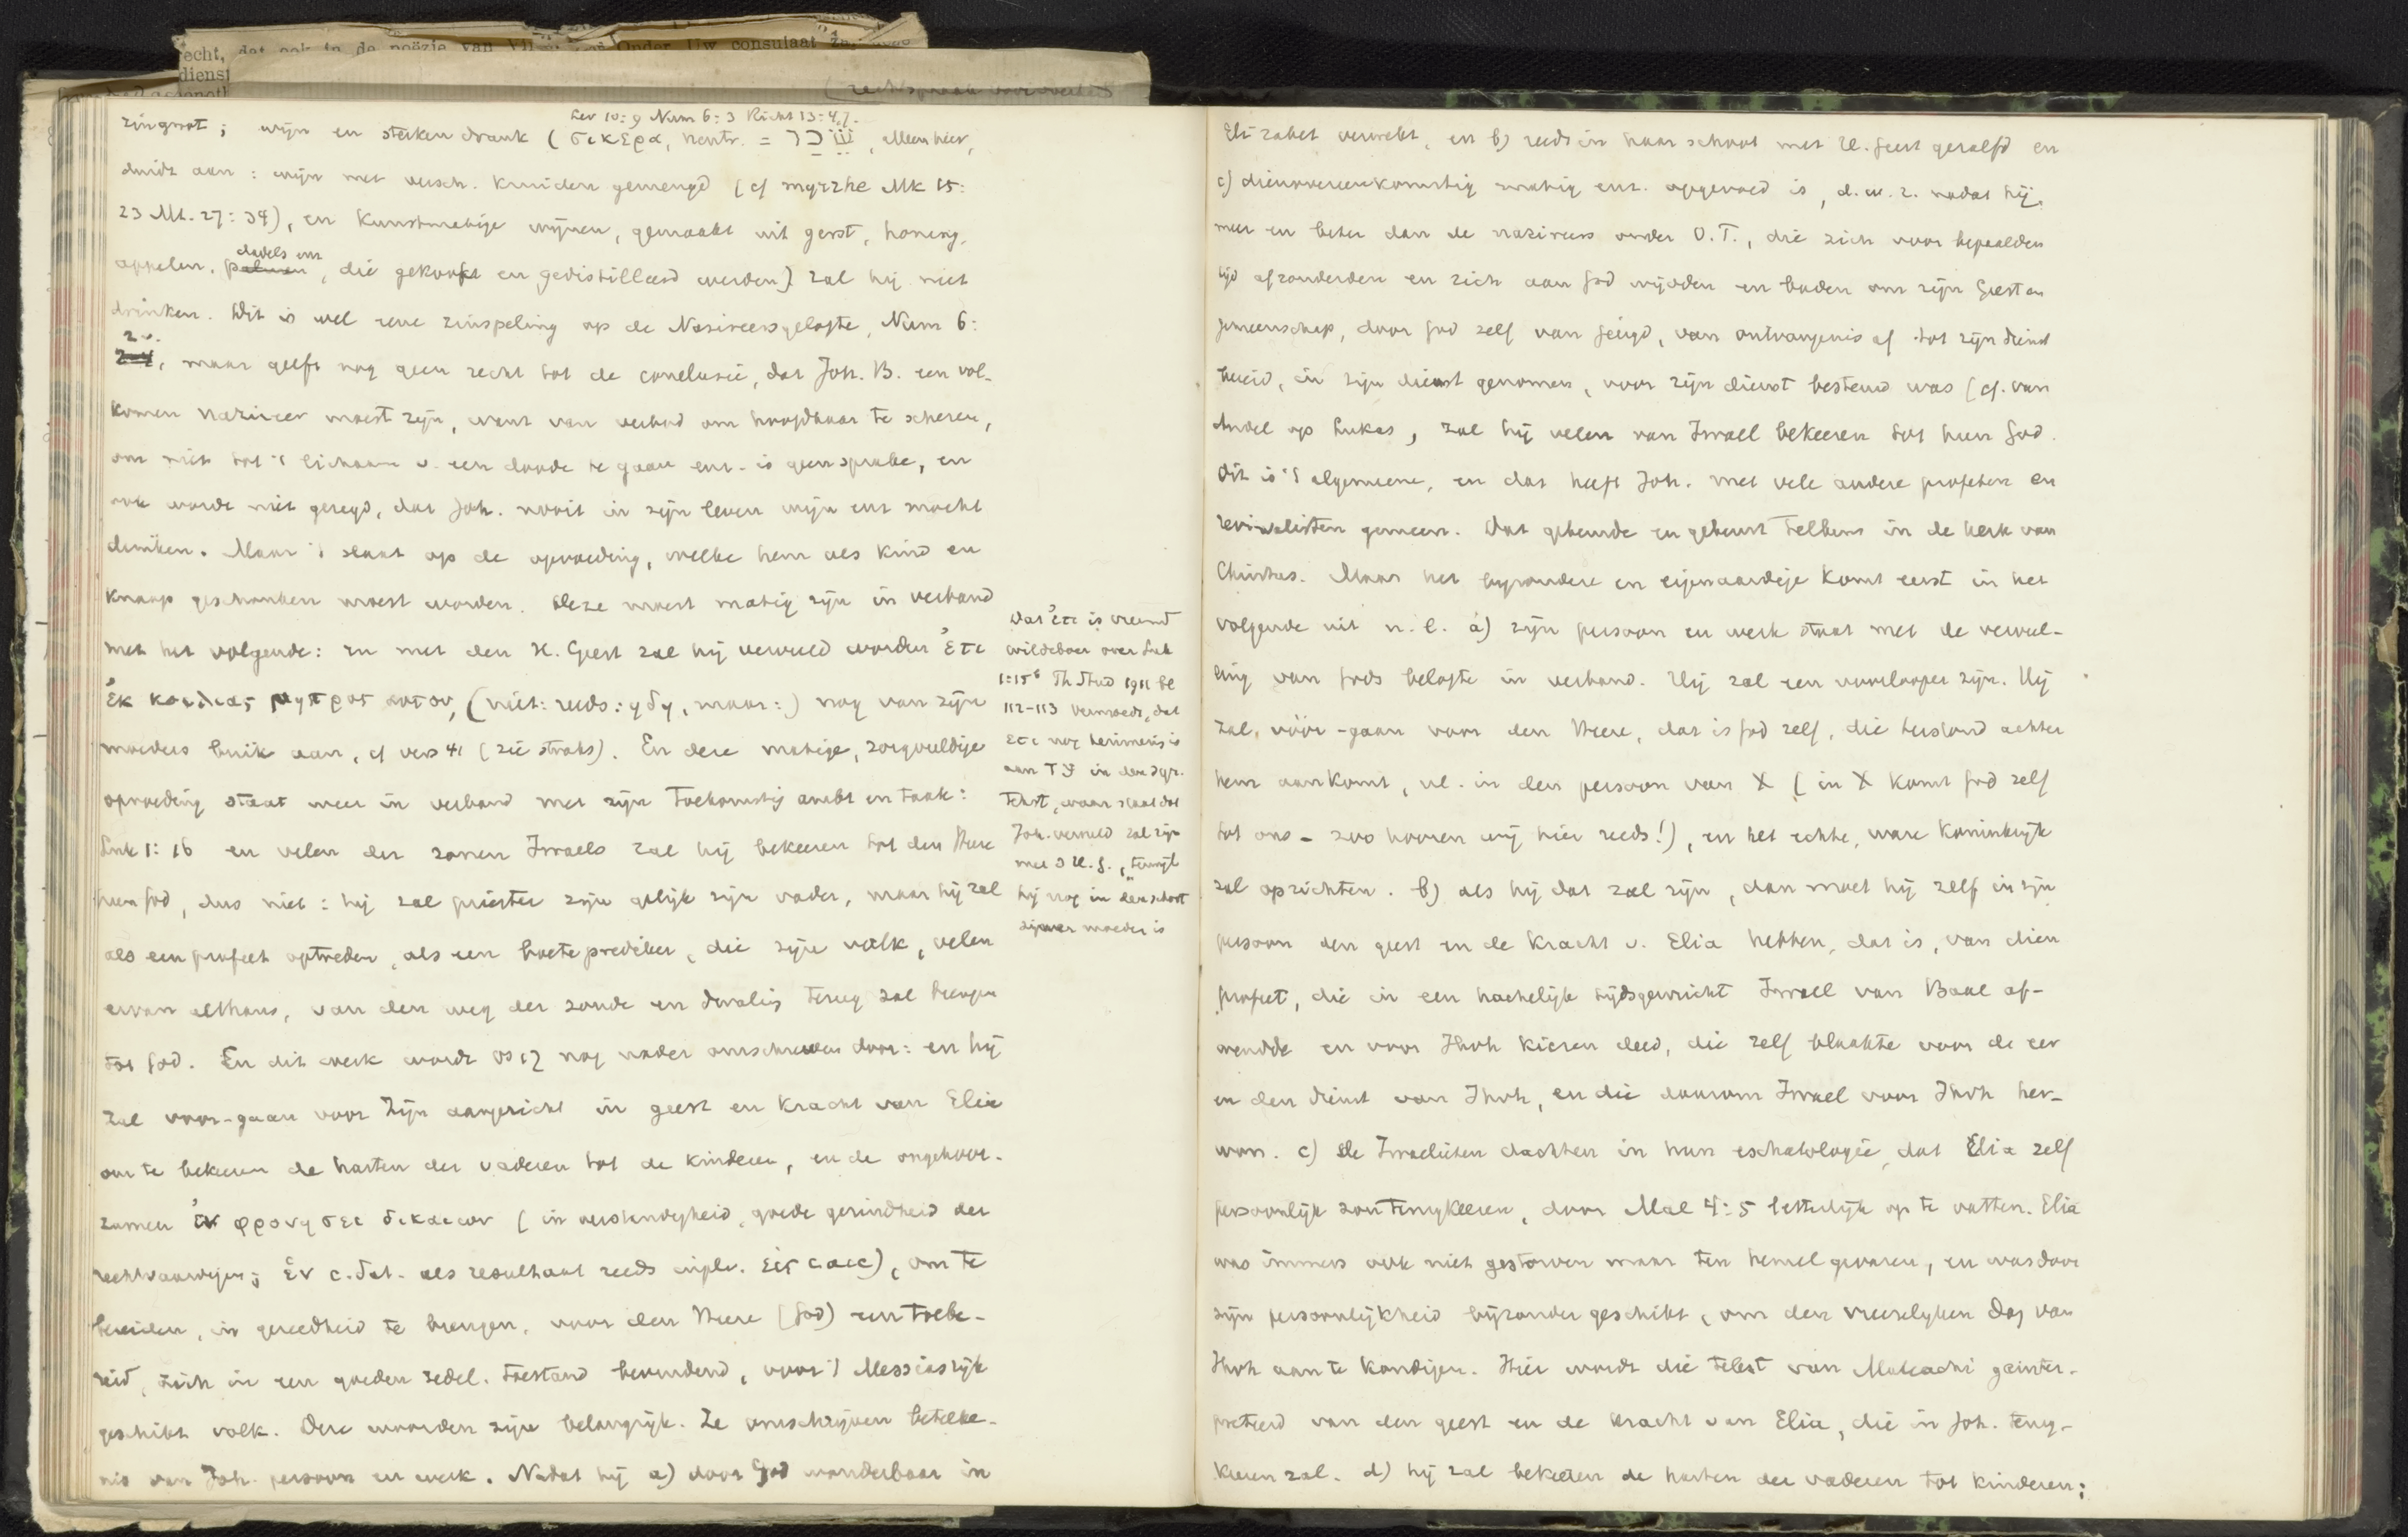 echt, dat ook in de poëzie van Onder Uw consulaat
dienst
(rechtspraak
Lev 10:9 Num 6:3 Richt 13:4,7.
zingnot; wijn en sterken drank (σικερα, neutr. = שׁכר, alleen hier,
duidt aan: wijn met versch. kruiden gemengd (cf myrrhe Mk 15:
23 Mt. 27:34), en kunstmatige wijnen, gemaakt uit gerst, honing,
dadels enz
appelen, palmen, die gekookt en gedistilleerd werden) zal hij niet
drinken. Dit is wel eene zinspeling op de Nasireersgelofte, Num 6:
2v.
2-4, maar geeft nog geen recht tot de conclusie, dat Joh. B. een vol-
komen nazireer moest zijn, want van verbod om hoofdhaar te scheren,
om niet tot 't lichaam v. een doode te gaan enz. is geen sprake, en
ook wordt niet gezegd, dat Joh. nooit in zijn leven wijn enz mocht
drinken. Maar 't slaat op de opvoeding, welke hem als kind en
knaap geschonken moest worden. Deze moest matig zijn in verband
met het volgende: en met den H. Geest zal hij vervuld worden ἐτι
ἐκ κοιλιας μητρος αυτου, (niet: reeds: ηδη, maar:) nog van zijn
moeders buik aan, cf vers 41 (zie straks). En deze matige, zorgvuldige
opvoeding staat weer in verband met zijn toekomstig ambt en taak:
Luk 1:16 en velen der zonen Israels zal hij bekeeren tot den Heere
hun God, dus niet: hij zal priester zijn gelijk zijn vader, maar hij zal
als een profeet optreden, als een boeteprediker, die zijn volk, velen
ervan althans, van den weg der zonde en dwaling terug zal brengen
tot God. En dit werk wordt vs 17 nog nader omschreven door: en hij
zal voor-gaan voor zijn aangezicht in geest en kracht van Elia
om te bekeeren de harten der vaderen tot de kinderen, en de ongehoor-
zamen ἐν φρονησει δικαιων (in verstandigheid, goede gezindheid der
rechtvaardigen; ἐν c. dat. als resultaat reeds impl. εἰς c acc), om te
bereiden, in gereedheid te brengen, voor den Heere (God) een toebe-
reid, zich in een goeden zedel. toestand bevindend, voor 't Messiasrijk
geschikt volk. Deze woorden zijn belangrijk. Ze omschrijven beteeke-
nis van Joh. persoon en werk. Nadat hij a) door God wonderbaar in
Dat ἐτι is vreemd
Wildeboer over Luk
1:15b Th Stud 1911 bl
112-113 vermoedt, dat
ετι nog herinnering is
aan in den syr.
tekst, waar staat dat
Joh. vervuld zal zijn
met d H. G., "terwijl
hij nog in den schoot
zijner moeder is
Elizabet verwekt, en b) reeds in haar schoot met H. Geest gezalfd en
c) dienovereenkomstig matig enz. opgevoed is, d.w.z. nadat hij,
meer en beter dan de nazireers onder O.T., die zich voor bepaalden
tijd afzonderden en zich aan God wijdden en baden om zijn Geest en
gemeenschap, door God zelf van jeugd, van ontvangenis af tot zijn dienst
bereid, in zijn dienst genomen, voor zijn dienst bestemd was (cf. van
Andel op Lukas, zal hij velen van Israel bekeeren tot hun God.
Dit is 't algemeene, en dat heeft Joh. met vele andere profeten en
revivalisten gemeen. Dat gebeurde en gebeurt telkens in de kerk van
Christus. Maar het bijzondere en eigenaardige komt eerst in het
volgende uit n.l. a) zijn persoon en werk staat met de vervul-
ling van Gods belofte in verband. Hij zal een voorlooper zijn. Hij
zal, vóór-gaan voor den Heere, dat is God zelf, die terstond achter
hem aankomt, nl. in den persoon van X (in X komt God zelf
tot ons - zoo hooren wij hier reeds!), en het echte, ware koninkrijk
zal oprichten. b) als hij dat zal zijn, dan moet hij zelf in zijn
persoon den geest en de kracht v. Elia hebben, dat is, van dien
profeet, die in een hachelijk tijdsgewricht Israel van Baal af-
wendde en voor Jhvh kiezen deed, die zelf blaakte voor de eer
en den dienst van Jhvh, en die daarom Israel voor Jhvh her-
won. c) De Israelieten dachten in hun eschatologie, dat Elia zelf
persoonlijk zou terugkeeren, door Mal 4:5 letterlijk op te vatten. Elia
was immers ook niet gestorven maar ten hemel gevaren, en was door
zijn persoonlijkheid bijzonder geschikt, om den vreeselyken dag van
Jhvh aan te kondigen. Hier wordt die tekst van Maleachi geinter-
preteerd van den geest en de kracht van Elia, die in Joh. terug-
keeren zal. d) hij zal bekeeren de harten der vaderen tot kinderen;